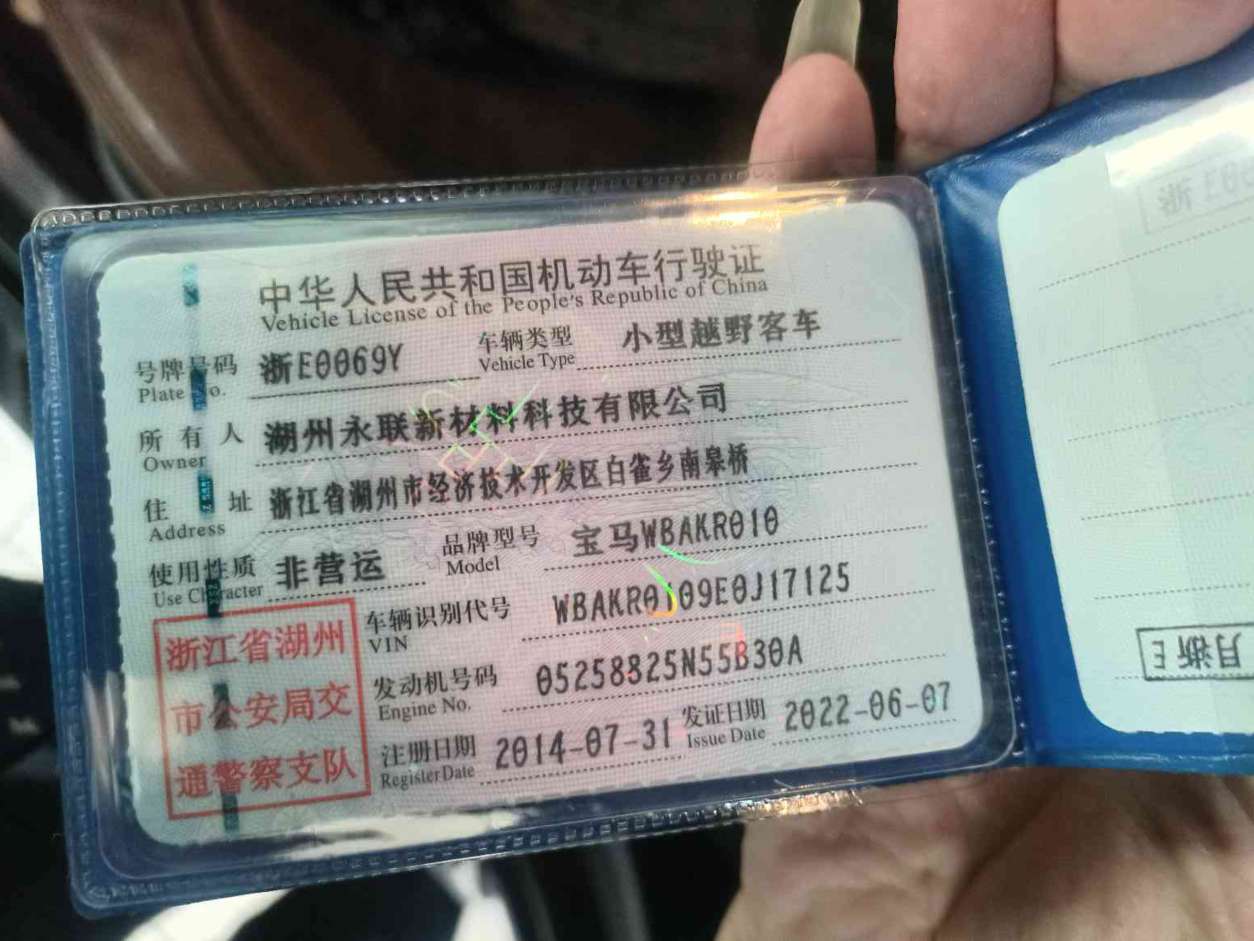 中华人民共和国机动车行驶证
Vehicle License of the People's Republic of China
号牌号码 浙E0069Y 车辆类型 小型越野客车
Plate No. Vehicle Type
所有人 湖州永联新材料科技有限公司
Owner
住址 浙江省湖州市经济技术开发区白雀乡南皋桥
Address
使用性质 非营运 品牌型号 宝马WBAKR010
Use Character Model
车辆识别代号 WBAKR0109E0J17125
VIN
发动机号码 05258825N55B30A
Engine No.
注册日期 2014-07-31 发证日期 2022-06-07
Register Date Issue Date
浙江省湖州
市公安局交
通警察支队
浙E0
月浙E